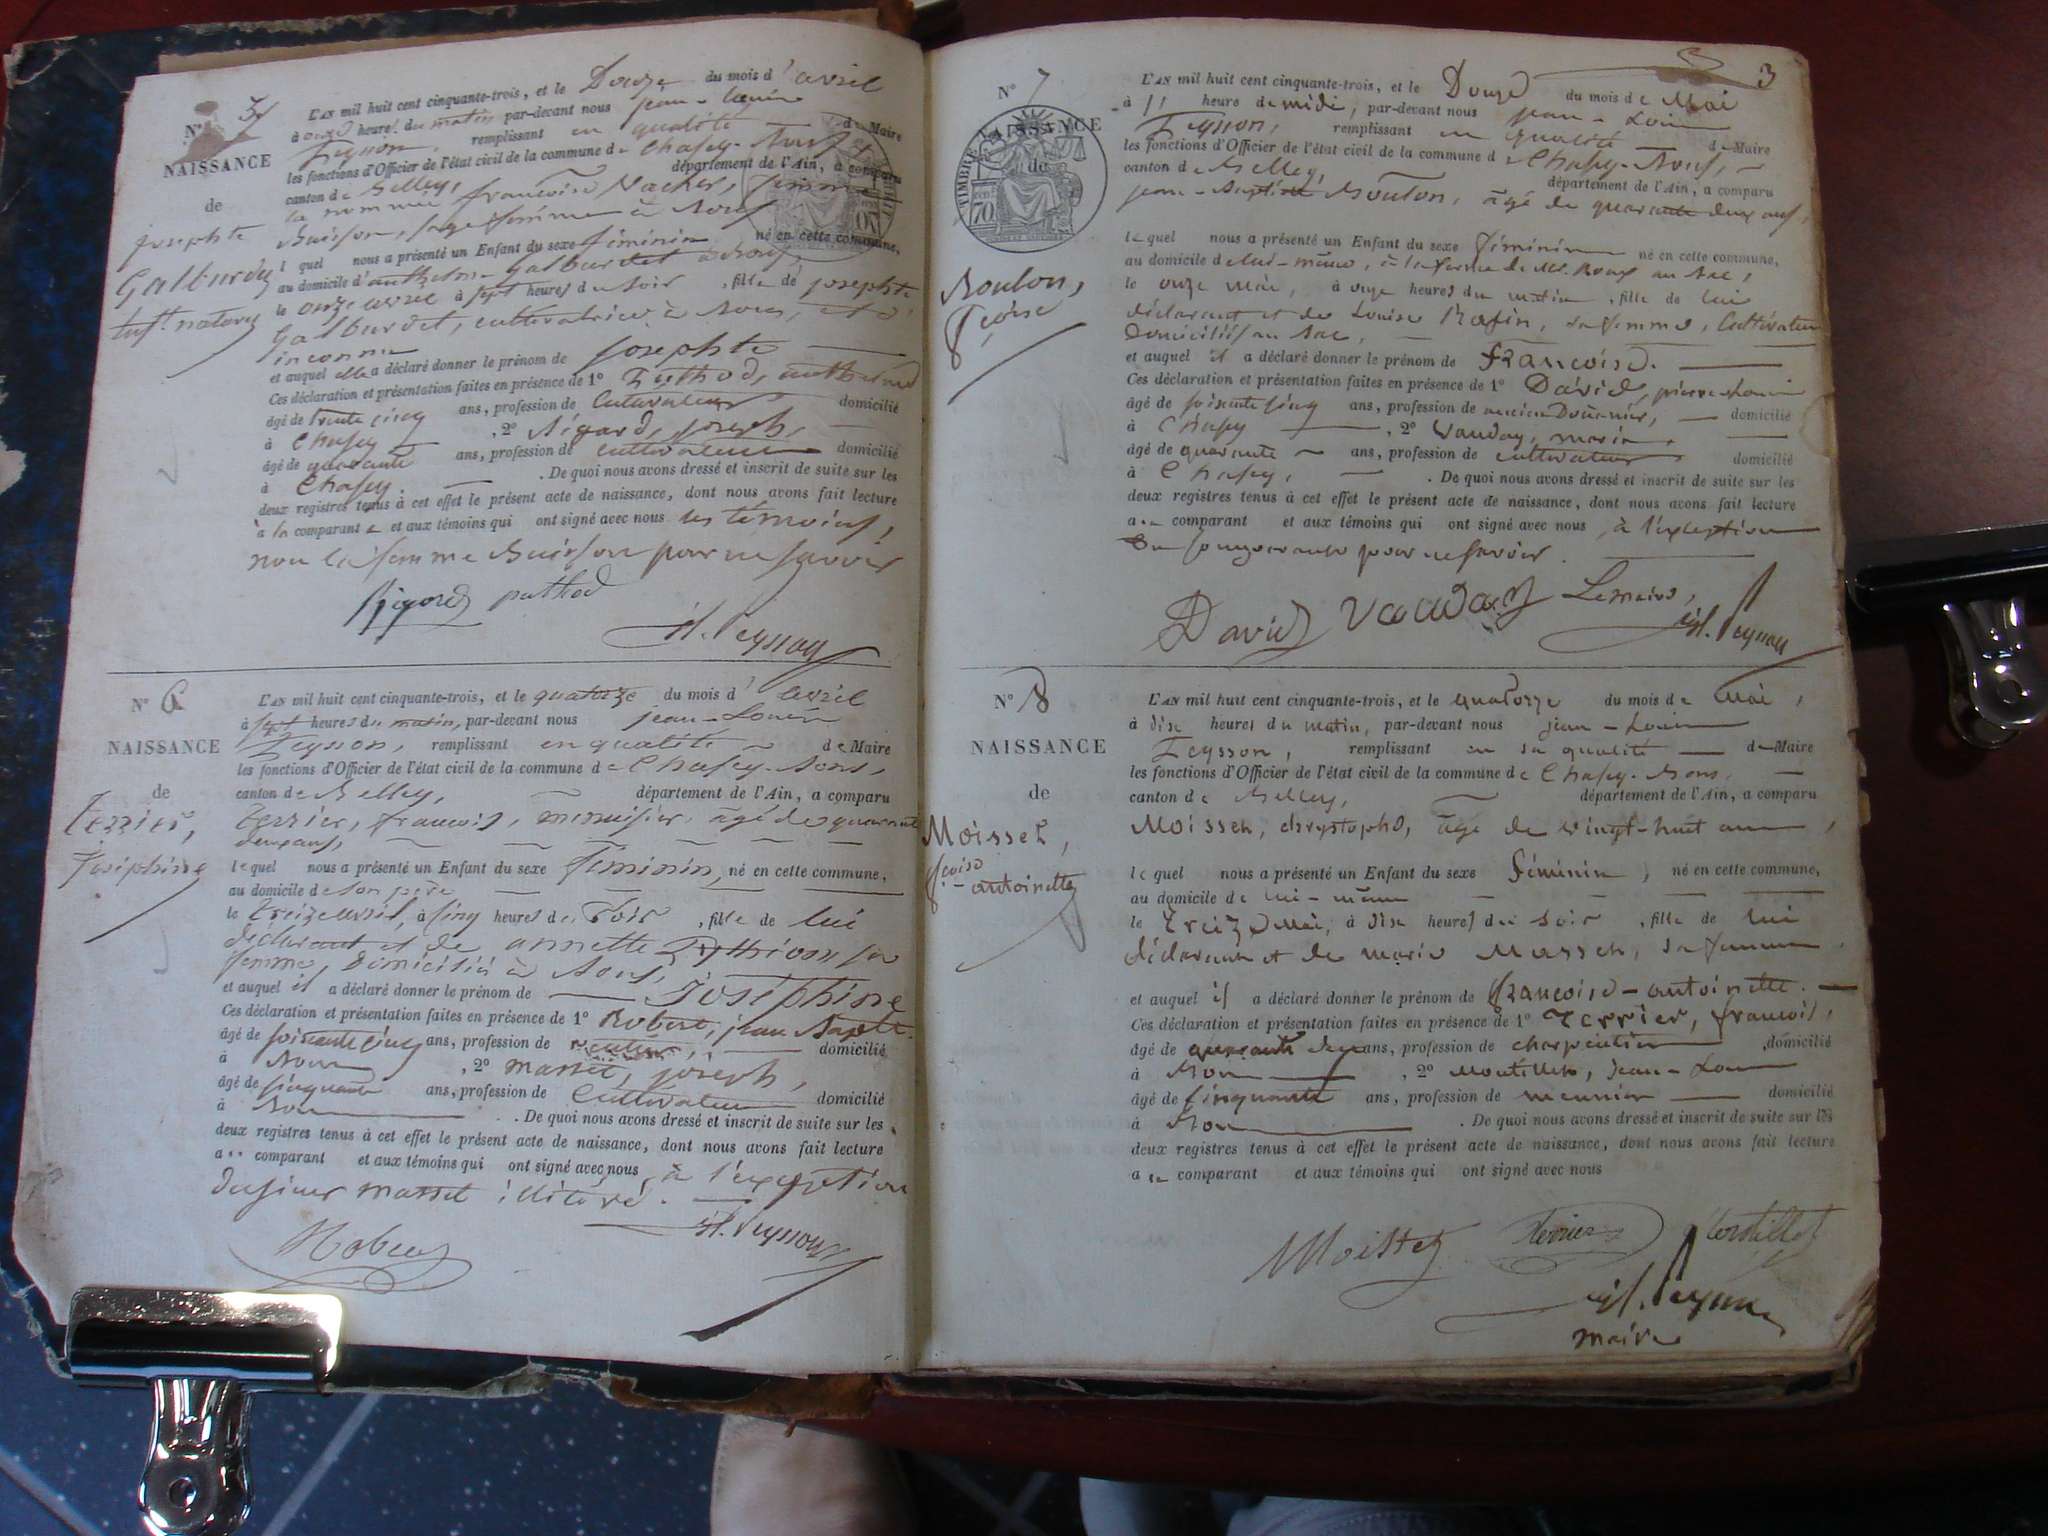 N° 5
NAISSANCE
de
josephte
Galburdet
enft. naturel
L'AN mil huit cent cinquante-trois, et le Douze du mois d'avril
à onze heures du matin par-devant nous jean-Louis
Peysson, remplissant en qualité de Maire
les fonctions d'Officier de l'état civil de la commune de Chasey-Bons,
canton de Belley, département de l'Ain, a comparu
la nommée françoise Vacher, femme
Buisson, sage femme à Bons
lequel nous a présenté un Enfant du sexe féminin né en cette commune,
au domicile d'anthelme Galburdet à Bons,
le onze avril à sept heures du soir, fille de josephte
Galburdet, cultivatrice à Bons, et d'
inconnu
et auquel elle a déclaré donner le prénom de josephte
Ces déclaration et présentation faites en présence de 1° anthelme
âgé de trente cinq ans, profession de Cultivateur domicilié
à Chasey, 2° Rigard, joseph,
âgé de quarante ans, profession de cultivateur domicilié
à Chasey. De quoi nous avons dressé et inscrit de suite sur les
deux registres tenus à cet effet le présent acte de naissance, dont nous avons fait lecture
à la comparante et aux témoins qui ont signé avec nous les témoins,
non la femme Buisson pour ne savoir
N° 6
NAISSANCE
de
Terrier,
Joséphine
L'AN mil huit cent cinquante-trois, et le quatorze du mois d'avril
à sept heures du matin, par-devant nous jean-Louis
Peysson, remplissant en qualité de Maire
les fonctions d'Officier de l'état civil de la commune de Chasey-Bons,
canton de Belley, département de l'Ain, a comparu
Terrier, francois, menuisier, âgé de quarante
deux ans,
lequel nous a présenté un Enfant du sexe féminin, né en cette commune,
au domicile de son père
le treize avril, à cinq heures du soir, fille de lui
déclarant et de annette sa
femme, domiciliés à Bons,
et auquel il a déclaré donner le prénom de Joséphine
Ces déclaration et présentation faites en présence de 1° Robert, jean Bapte.
âgé de soixante cinq ans, profession de domicilié
à Bons, 2° masset, joseph,
âgé de cinquante ans, profession de Cultivateur domicilié
à Bons. De quoi nous avons dressé et inscrit de suite sur les
deux registres tenus à cet effet le présent acte de naissance, dont nous avons fait lecture
au comparant et aux témoins qui ont signé avec nous, à l'exception
du sieur masset illitéré.
N° 7
NAISSANCE
de
TIMBRE
70
Bouton,
fçoise
3
L'AN mil huit cent cinquante-trois, et le Douze du mois de Mai
à 11 heure de midi, par-devant nous jean-Louis
Peysson, remplissant en qualité de Maire
les fonctions d'Officier de l'état civil de la commune de Chasey-Bons,
canton de Belley, département de l'Ain, a comparu
jean-Baptiste Bouton, âgé de quarante deux ans,
lequel nous a présenté un Enfant du sexe féminin né en cette commune,
au domicile de lui-même, à la ferme de Mr. Roux au Sac,
le onze Mai, à onze heures du matin, fille de lui
déclarant et de Louise Rafin, sa femme, Cultivateurs
domiciliés au Sac,
et auquel il a déclaré donner le prénom de francoise.
Ces déclaration et présentation faites en présence de 1° David, pierre Louis
âgé de soixante cinq ans, profession de ancien Douanier, domicilié
à Chasey, 2° Vauday, marin,
âgé de quarante ans, profession de cultivateur domicilié
à Chasey. De quoi nous avons dressé et inscrit de suite sur les
deux registres tenus à cet effet le présent acte de naissance, dont nous avons fait lecture
au comparant et aux témoins qui ont signé avec nous, à l'exception
du comparant pour ne savoir.
David Vauday Le maire,
N° 8
NAISSANCE
de
Moisset,
fçoise
-antoinette
L'AN mil huit cent cinquante-trois, et le quatorze du mois de Mai,
à dix heures du matin, par-devant nous jean-Louis
Peysson, remplissant en sa qualité de Maire
les fonctions d'Officier de l'état civil de la commune de Chasey-Bons,
canton de Belley, département de l'Ain, a comparu
Moisset, chrystophe, âgé de vingt-huit ans,
lequel nous a présenté un Enfant du sexe féminin, né en cette commune,
au domicile de lui-même
le treize Mai, à dix heures du soir, fille de lui
déclarant et de marie Masset, sa femme
et auquel il a déclaré donner le prénom de francoise-antoinette.
Ces déclaration et présentation faites en présence de 1° Terrier, francois,
âgé de quarante deux ans, profession de charpentier domicilié
à Bons, 2° jean-Louis
âgé de cinquante ans, profession de meunier domicilié
à Bons. De quoi nous avons dressé et inscrit de suite sur les
deux registres tenus à cet effet le présent acte de naissance, dont nous avons fait lecture
au comparant et aux témoins qui ont signé avec nous
Moisset Terrier
maire